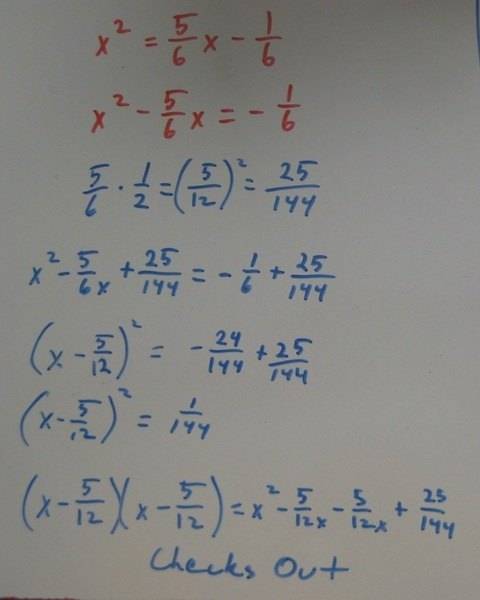 x² = 5/6 x - 1/6
x² - 5/6 x = - 1/6
5/6 · 1/2 = (5/12)² = 25/144
x² - 5/6x + 25/144 = - 1/6 + 25/144
(x - 5/12)² = - 24/144 + 25/144
(x - 5/12)² = 1/144
(x - 5/12)(x - 5/12) = x² - 5/12x - 5/12x + 25/144
Checks Out